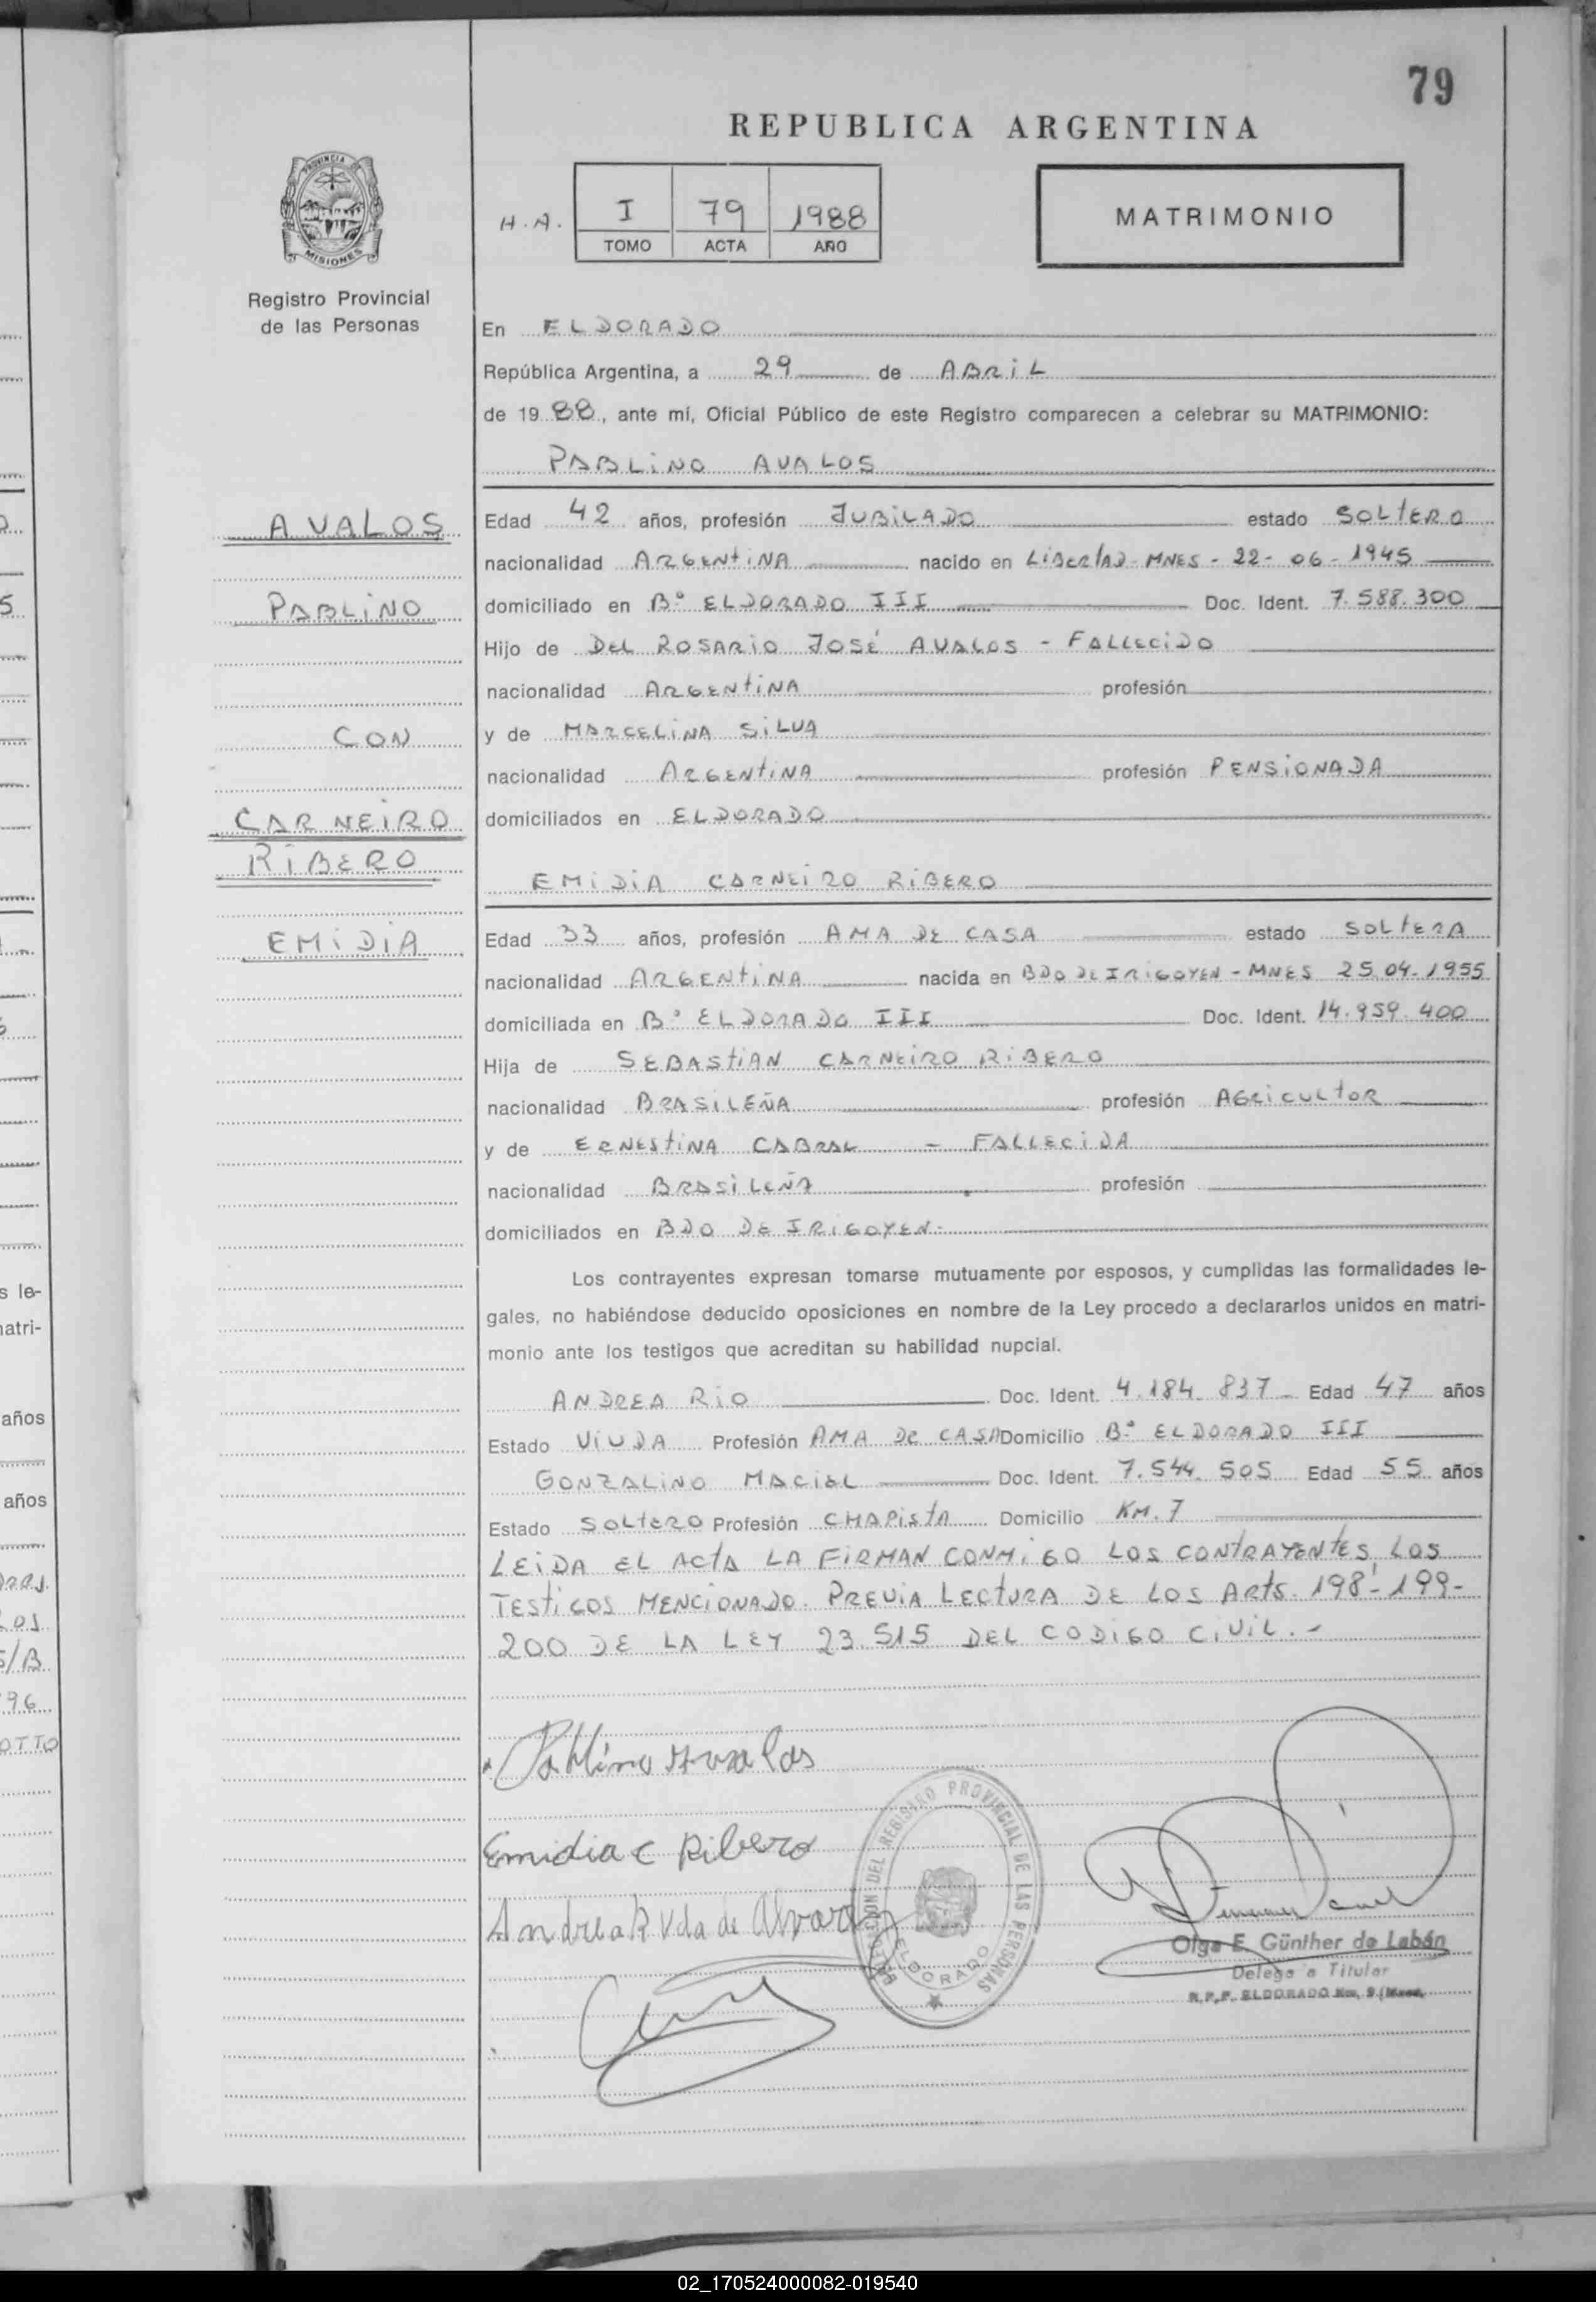 79
REPUBLICA ARGENTINA
PROVINCIA DE
MISIONES
Registro Provincial
de las Personas
H.A. I 79 1988
TOMO ACTA AÑO
MATRIMONIO
En ELDORADO
República Argentina, a 29 de ABRIL
de 1988, ante mí, Oficial Público de este Registro comparecen a celebrar su MATRIMONIO:
PABLINO AVALOS
AVALOS
PABLINO
CON
CARNEIRO
RIBERO
EMIDIA
Edad 42 años, profesión JUBILADO estado SOLTERO
nacionalidad ARGENTINA nacido en LIBERTAD-MNES - 22-06-1945
domiciliado en Bº ELDORADO III Doc. Ident. 7.588.300
Hijo de DEL ROSARIO JOSÉ AVALOS - FALLECIDO
nacionalidad ARGENTINA profesión
y de MARCELINA SILVA
nacionalidad ARGENTINA profesión PENSIONADA
domiciliados en ELDORADO
EMIDIA CARNEIRO RIBERO
Edad 33 años, profesión AMA DE CASA estado SOLTERA
nacionalidad ARGENTINA nacida en BDO DE IRIGOYEN - MNES 25.04.1955
domiciliada en Bº ELDORADO III Doc. Ident. 14.959.400
Hija de SEBASTIAN CARNEIRO RIBERO
nacionalidad BRASILEÑA profesión AGRICULTOR
y de ERNESTINA CABRAL - FALLECIDA
nacionalidad BRASILEÑA profesión
domiciliados en BDO DE IRIGOYEN.
Los contrayentes expresan tomarse mutuamente por esposos, y cumplidas las formalidades le-
gales, no habiéndose deducido oposiciones en nombre de la Ley procedo a declararlos unidos en matri-
monio ante los testigos que acreditan su habilidad nupcial.
ANDREA RIO Doc. Ident. 4.184.837 Edad 47 años
Estado VIUDA Profesión AMA DE CASA Domicilio Bº ELDORADO III
GONZALINO MACIEL Doc. Ident. 7.544.505 Edad 55 años
Estado SOLTERO Profesión CHAPISTA Domicilio KM.7
LEIDA EL ACTA LA FIRMAN CONMIGO LOS CONTRAYENTES, LOS
TESTIGOS MENCIONADO. PREVIA LECTURA DE LOS ARTS. 198-199-
200 DE LA LEY 23.515 DEL CODIGO CIVIL.-
Pablino Avalos
Emidia C Ribero
Andrea R Vda de
REGISTRO PROVINCIAL DE LAS PERSONAS
ELDORADO
Olga E. Günther de Labán
Delegada Titular
R.P.P. ELDORADO Km. 9 (Mnes.
s le-
atri-
años
años
96
OTTO
02_170524000082-019540